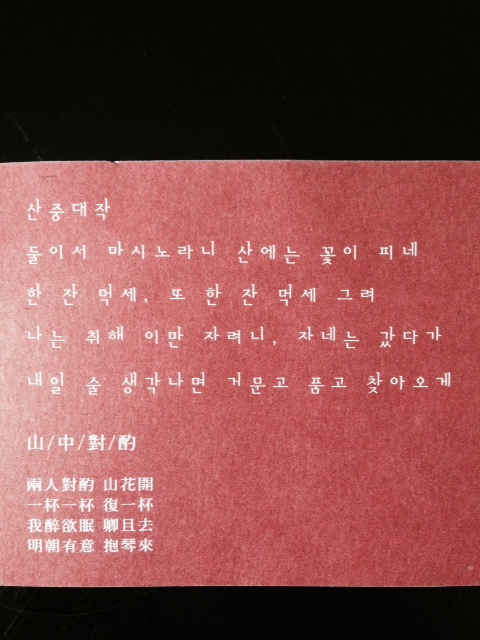 산중대작
둘이서 마시노라니 산에는 꽃이 피네
한 잔 먹세, 또 한 잔 먹세 그려
나는 취해 이만 자려니, 자네는 갔다가
내일 술 생각나면 거문고 품고 찾아오게
山/中/對/酌
兩人對酌 山花開
一杯一杯 復一杯
我醉欲眠 卿且去
明朝有意 抱琴來